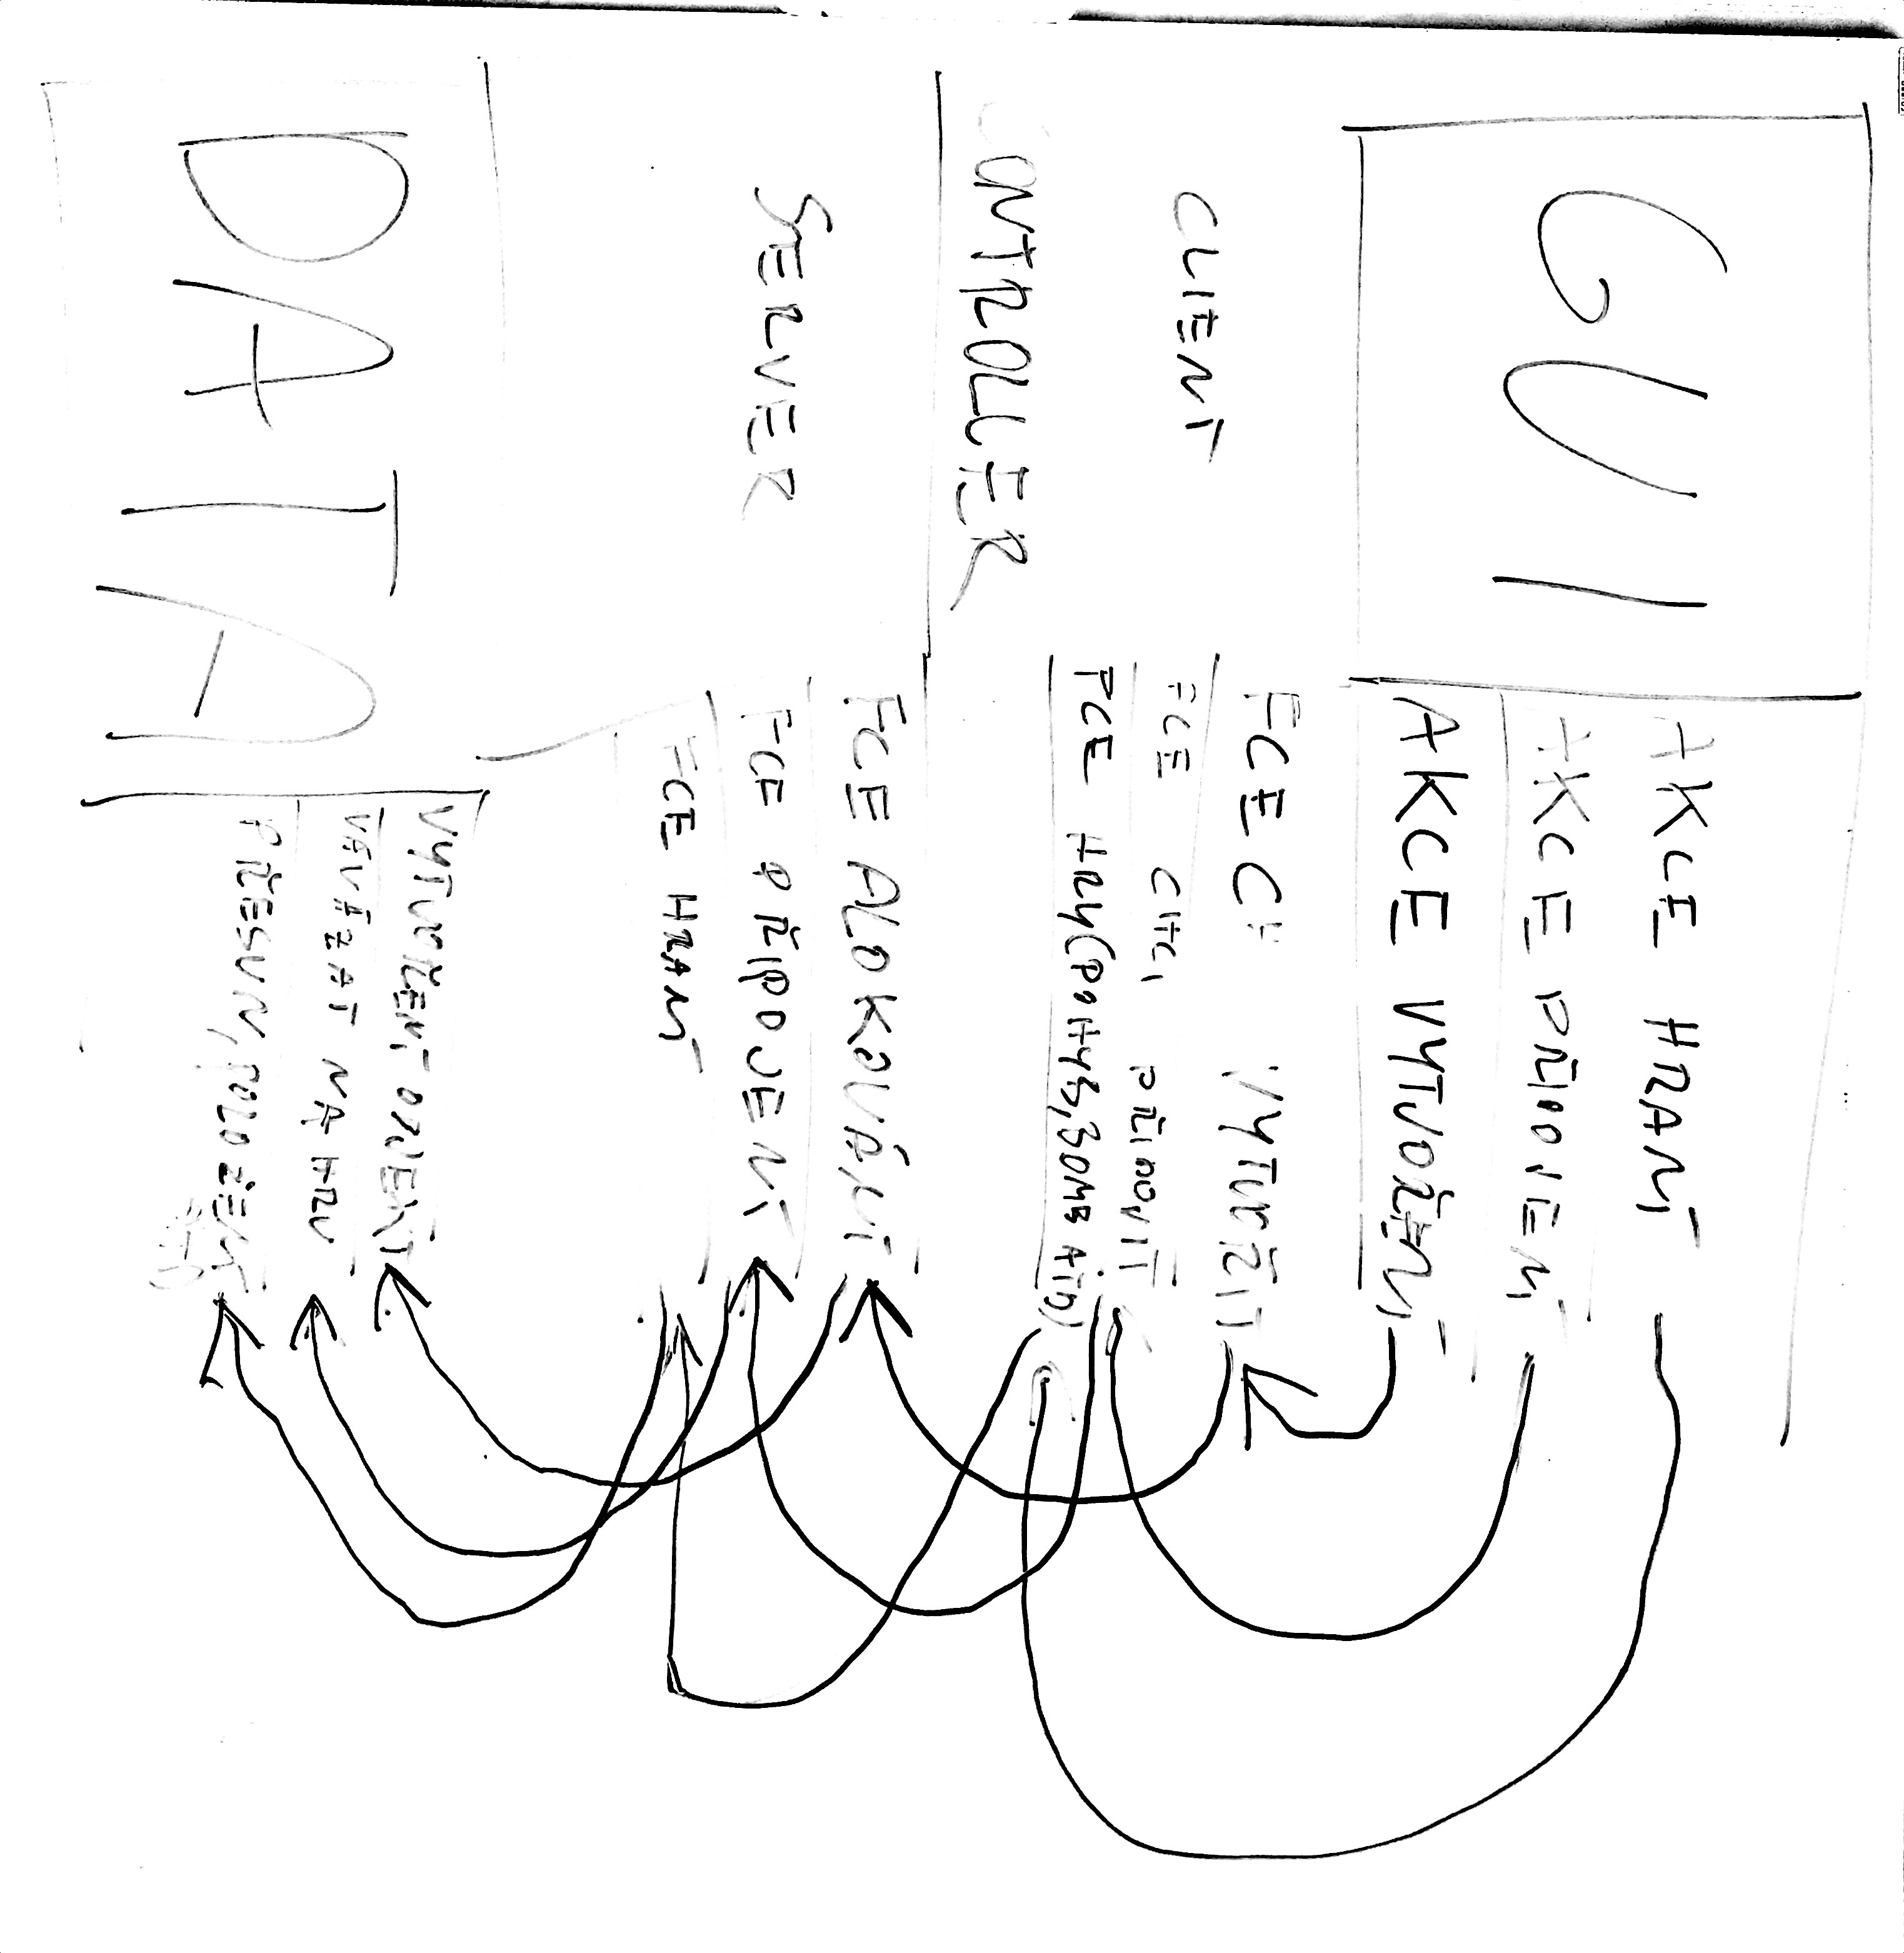 GUI
AKCE HRANÍ
AKCE PŘIPOJENÍ
AKCE VYTVOŘENÍ
CLIENT
FCE CH VYTVOŘIT
FCE CHCI PŘIPOJIT
FCE HRY(POHYB, BOMB ATD)
CONTROLLER
SERVER
FCE ALOKOVÁNÍ
FCE PŘIPOJENÍ
FCE HRANÍ
DATA
VYTVOŘENÍ OBJEKT
NA HRU
PŘESUN, POLOŽENÍ
ATD